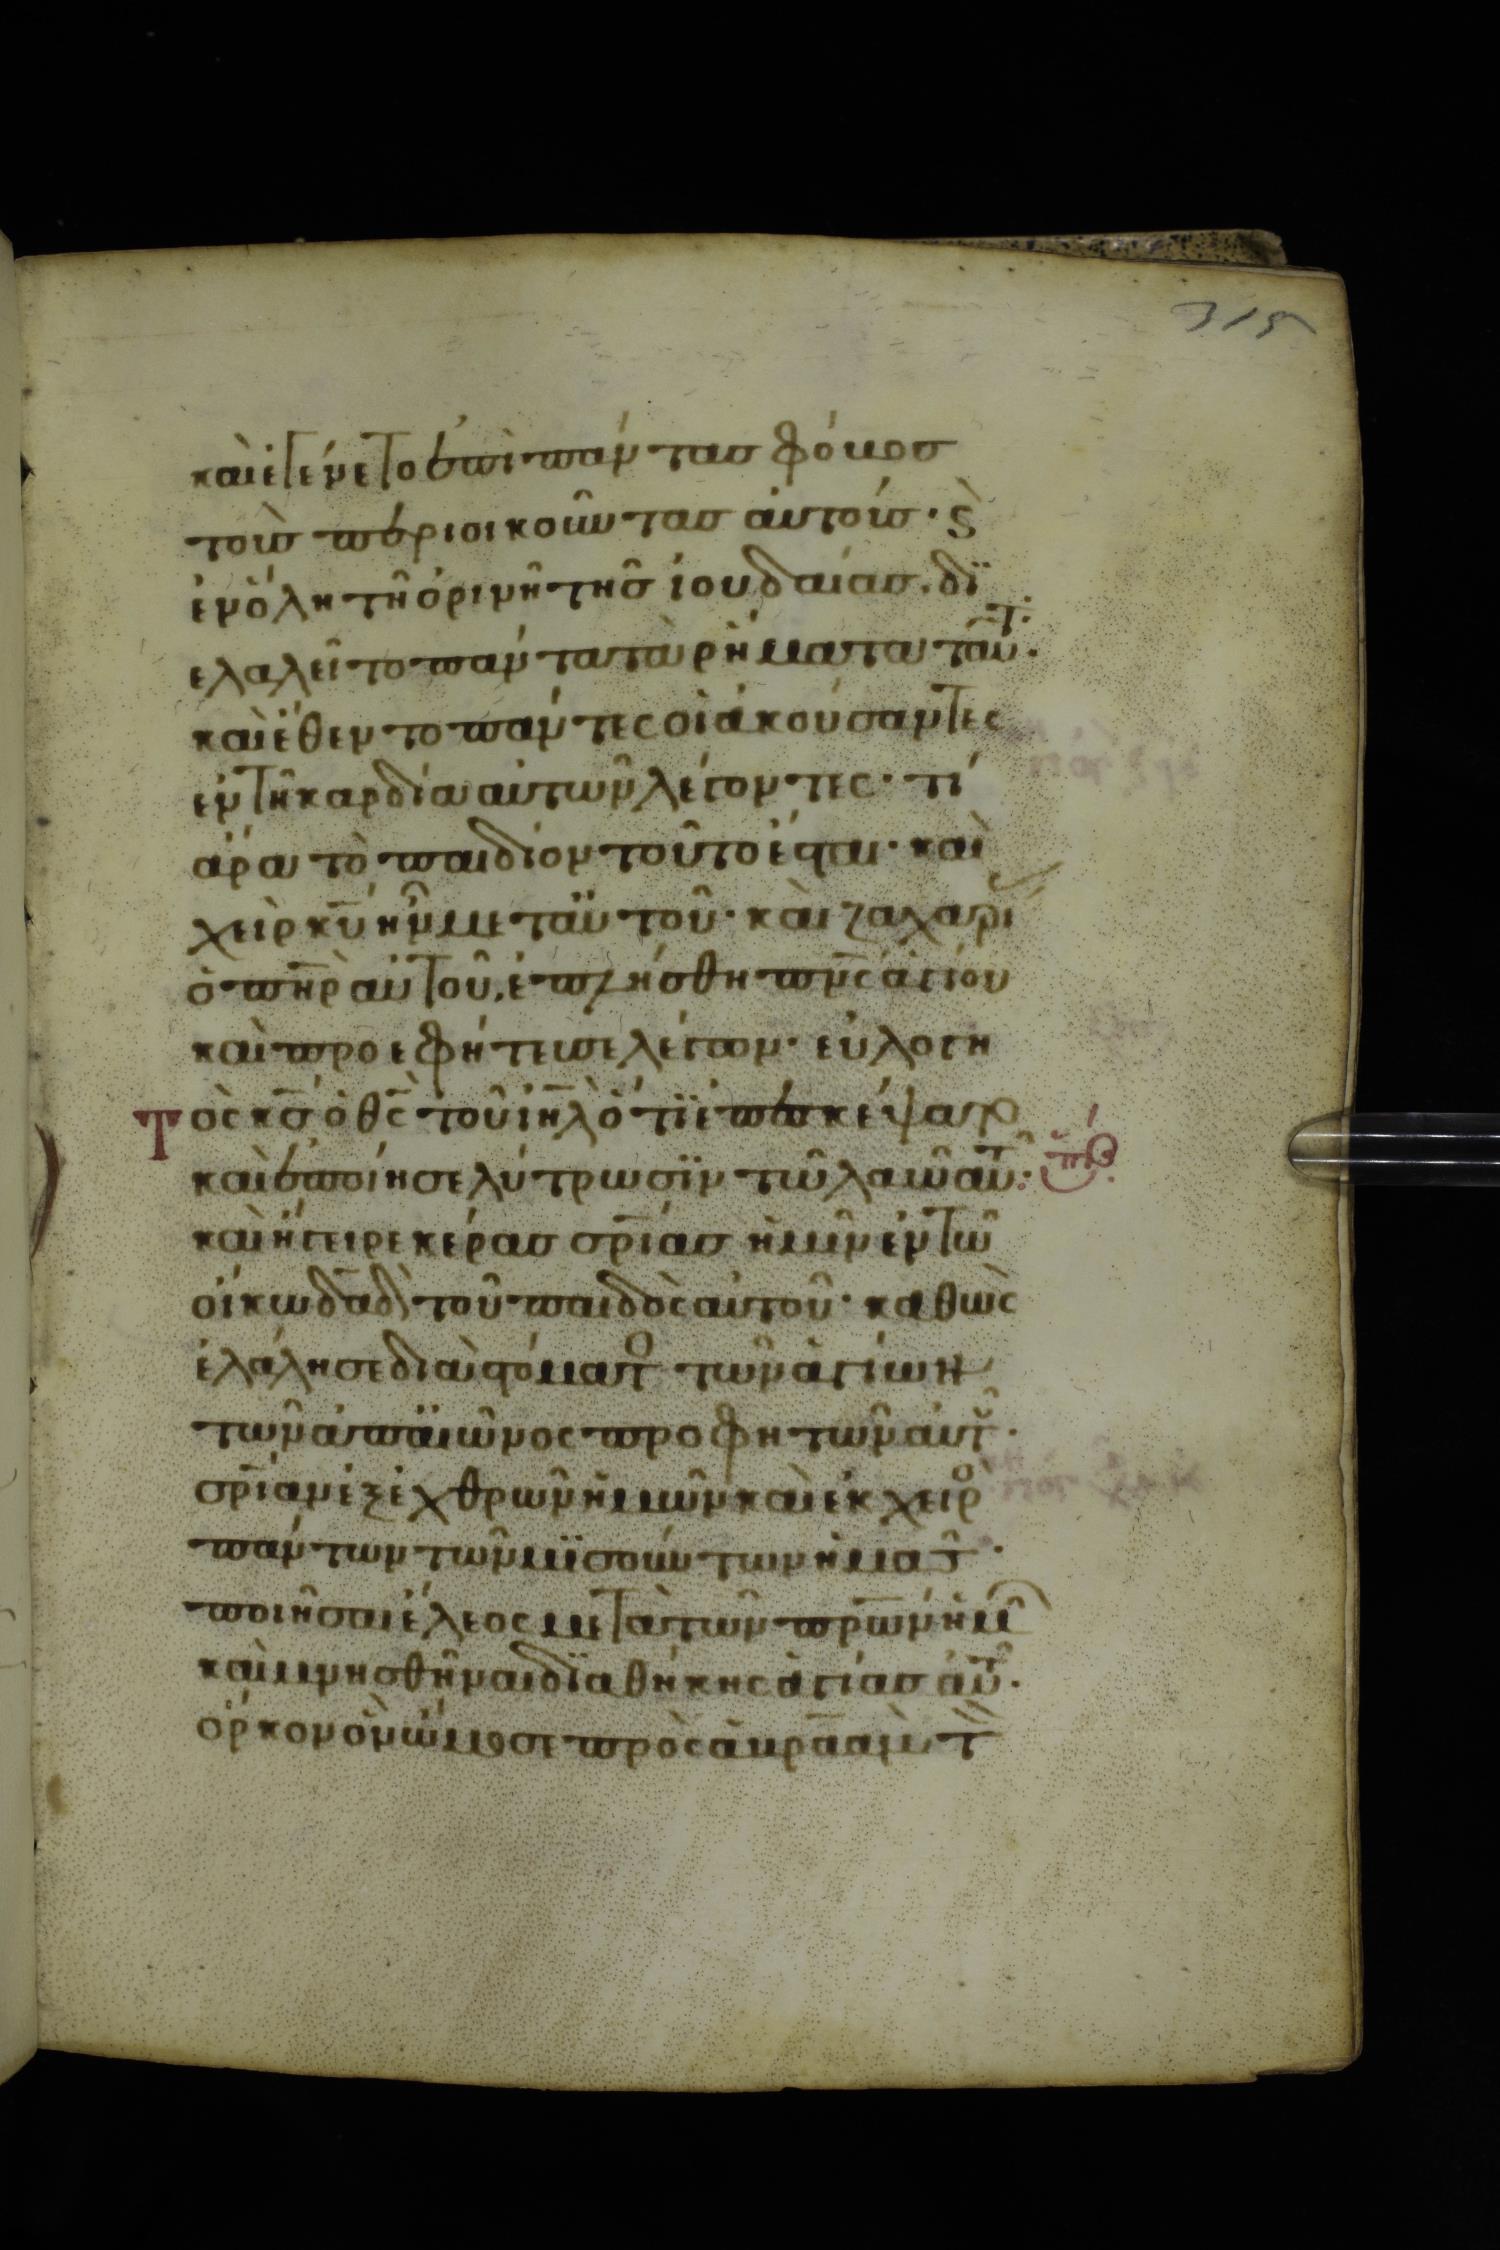 315
καὶ ἐγένετο ἐπὶ πάντας φόβος
τοὺς περιοικοῦντας αὐτούς· ϛ̀
ἐν ὅλη τῆ ὀρινῆ τῆς ἰουδαίας. δϊ
ελαλεῖτο πάντα τὰ ρήματα ταῦτ·
καὶ ἔθεντο πάντες οἱ ἀκούσαντες
ἐν τῆ καρδία αὐτῶν λέγοντες· τί
ἄρα τὸ παιδίον τοῦτο ἔσται· καὶ
χεὶρ κ̅υ̅ ἦν μετ αὐτοῦ· καὶ ζαχαρί
ὁ π̅η̅ρ̅ αὐτοῦ, ἐπλήσθη π̅ν̅ς̅ ἁγίου
καὶ προεφήτευσε λέγων· εὐλογη
Τὸς κ̅ς̅ ὁ θ̅ς̅ τοῦ ι̅η̅λ̅ ὅτϊ ἐπεσκέψατο
καὶ ἐποίησε λύτρωσϊν τῶ λαῶ αὐτ:
καὶ ἤγειρε κέρας σ̅ρ̅ίας ἡμῖν ἐν τῶ
οἴκω δ̅α̅δ̅ τοῦ παιδὸς αὐτοῦ· καθὼς
ἐλάλησε διὰ στόματο τῶν ἁγίων
τῶν ἀπ αἰῶνος προφητῶν αὐτ·
σ̅ρ̅ίαν ἐξ ἐχθρῶν ἡμῶν καὶ ἐκ χειρὸ
πάντων τῶν μϊσούντων ἡμας·
ποιῆσαι ἔλεος μετὰ τῶν π̅ρ̅ω̅ν̅ ἡμ
καὶ μνησθῆναι δϊαθήκης ἁγίας αὐτ·
ὅρκον ὃν ὤμοσε πρὸς ἀβρ̅α̅ὰμ τ